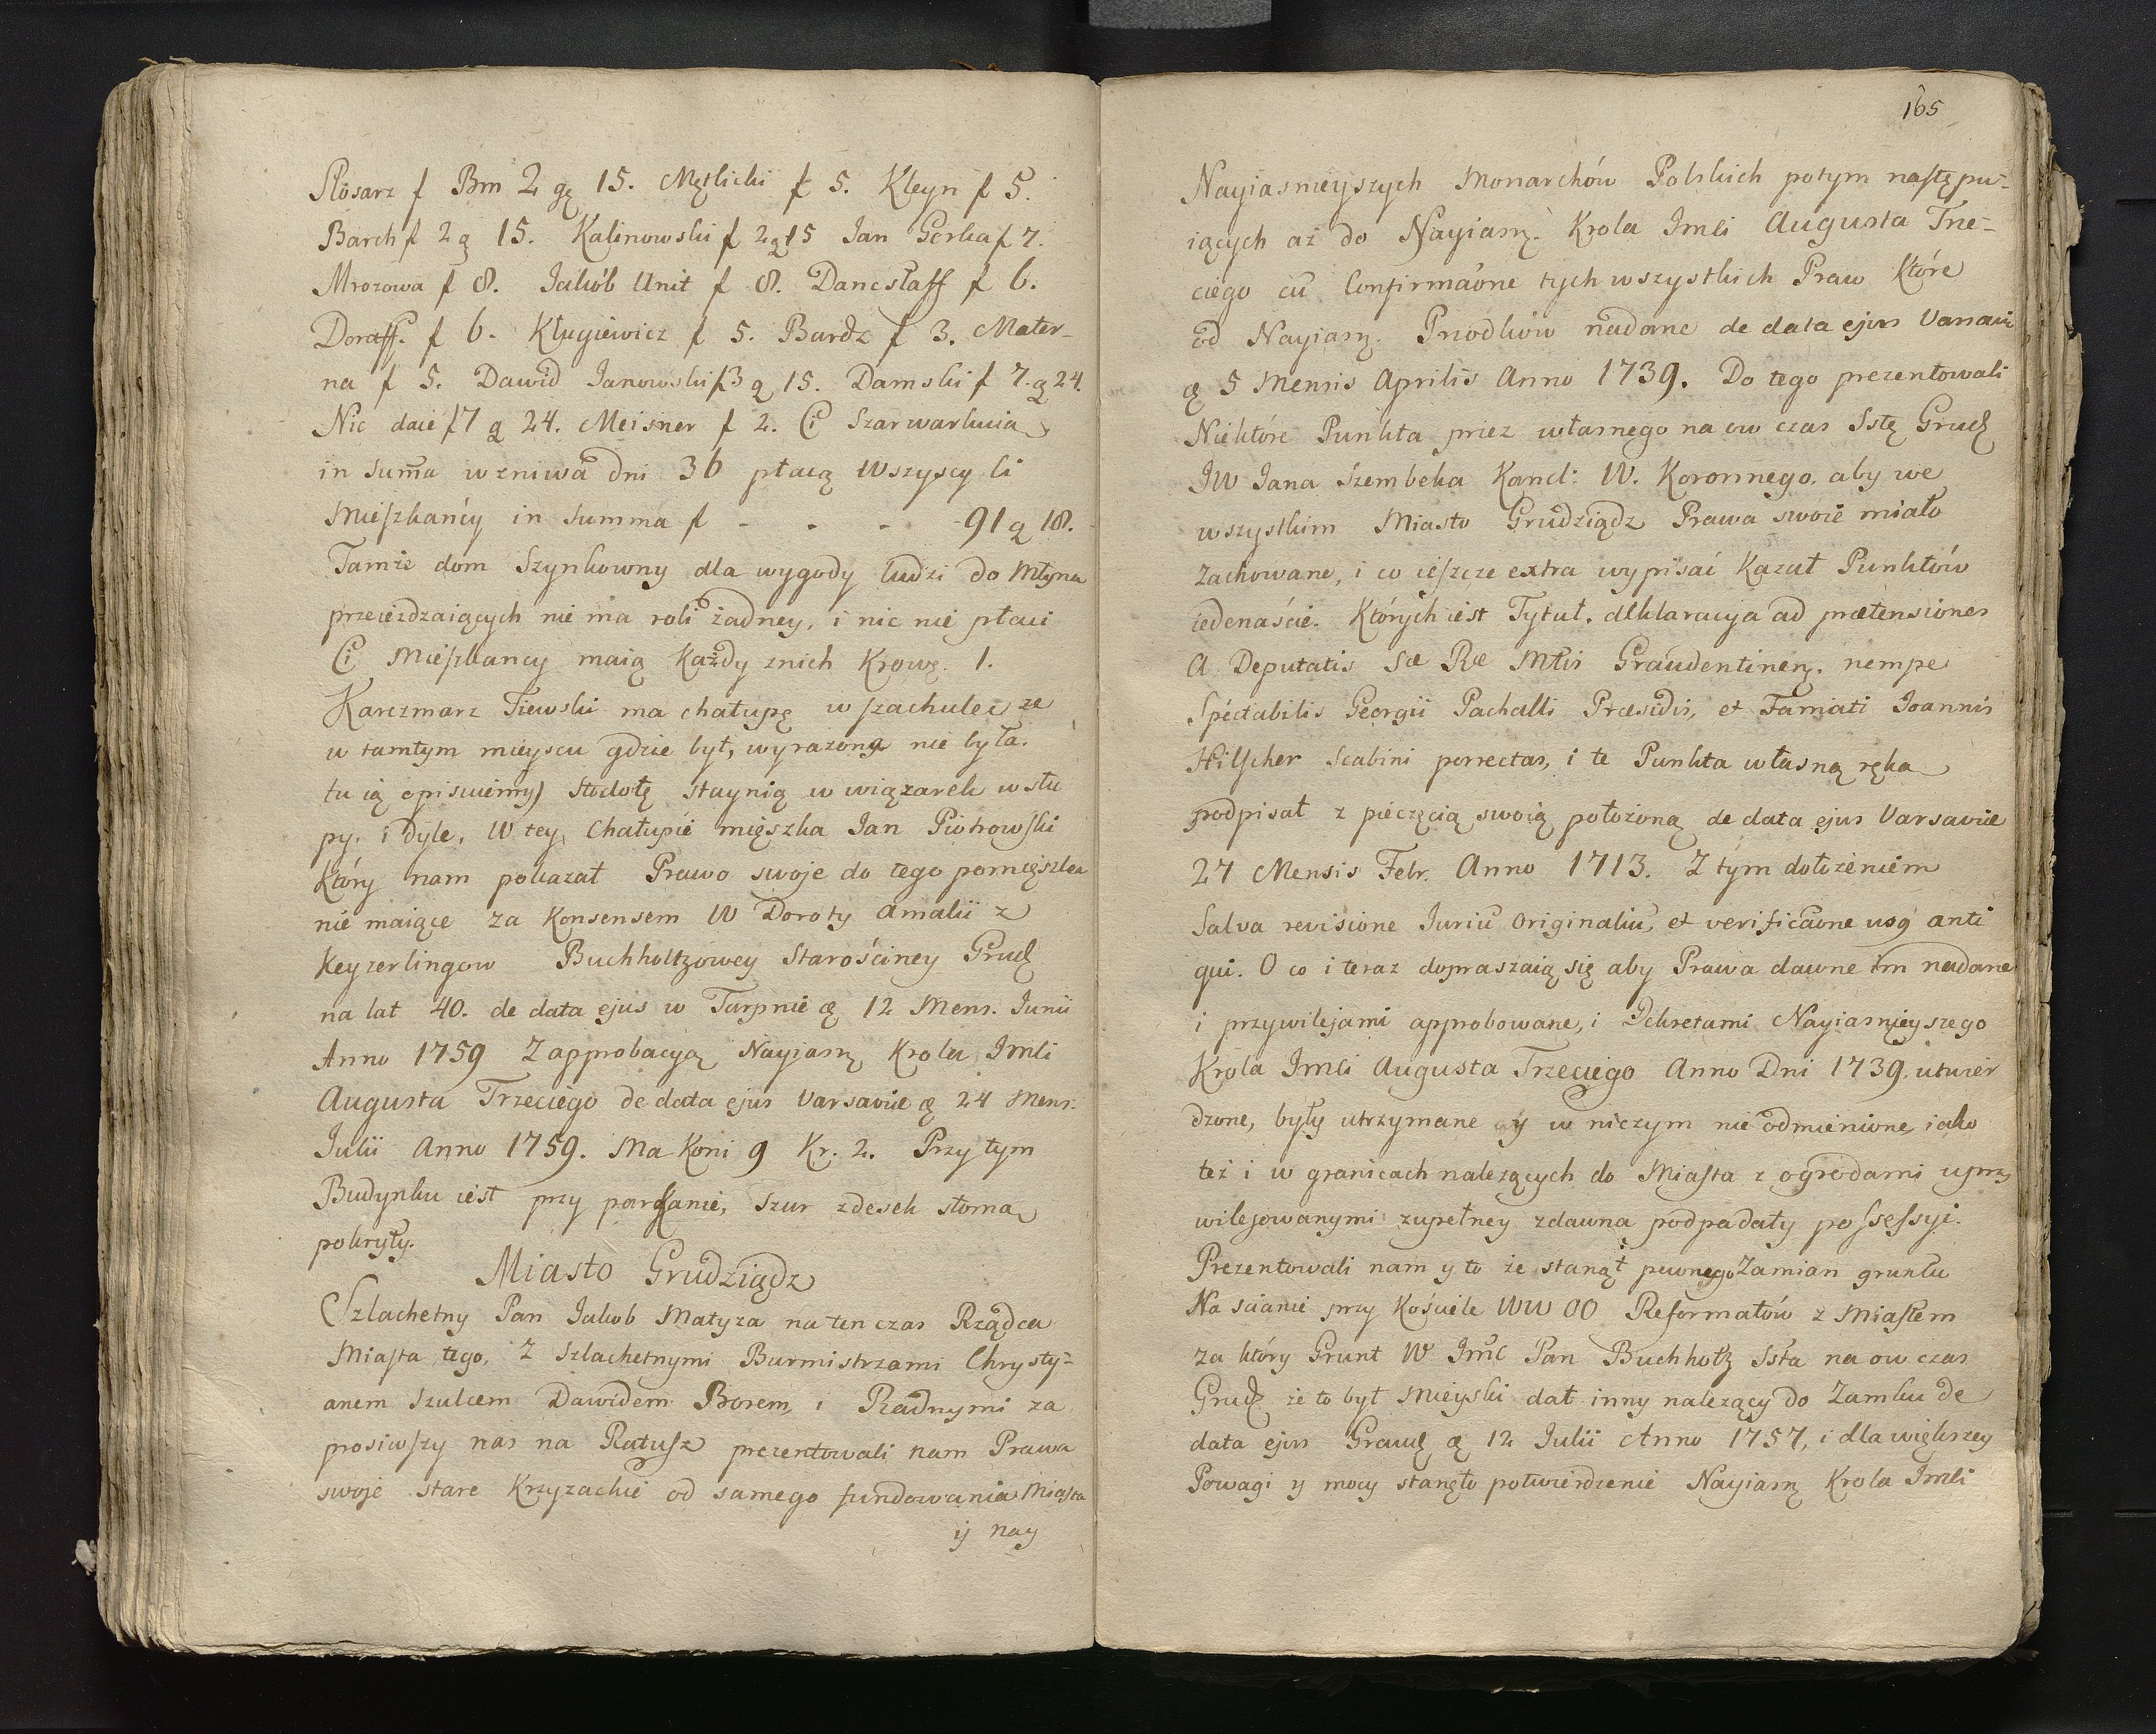 Slosarz f Bm 2 gę 15. Mętlicki f 5. Kleyn f 5.
Barch f 2 g 15. Kalinowski f 2 g 15 Jan Gerka f 7.
Mrozowa f 8. Jakób Unit f 8. Dancslaff f 6.
Doraff. f 6. Klugiewicz f 5. Bardz f 3. Mater-
na f 5. Dawid Janowski f 3 g 15. Damski f 7. g 24.
Nic daie f 7 g 24. Meisner f 2. Ci Szarwarkuia
in suma w zniwa dni 36 płacą Wszyscy ci
Mieszkańcy in Summa f - - - - 91 g 18.
Tamże dom Szynkowny dla wygody ludzi do Młyna
przeieżdzaiących nie ma roli żadney, i nic nie płaci
Ci Mieszkancy maią Każdy znich Krowę. 1.
Karczmarz Tiewski ma chałupę w szachulec ze
w tamtym mieyscu gdzie był, wyrażona nie była.
tu ią opisuiemy) stodołę staynią w wiązarek w słu
py. i dyle. W tey Chałupie mięszka Jan Piotrowski
Który nam pokazał Prawo swoje do tego pomięszka
nie maiące za Konsensem W Doroty Amalii z
Keyzerlingow Buchholtzowey Starościney Grudz
na lat 40. de data ejus w Tarpnie ę 12 Mens. Junii
Anno 1759 Z approbacyą Nayiasn Krola Jmci
Augusta Trzeciego de data ejus Varsaviæ ę 24 Mens.
Julii Anno 1759. Ma Koni 9 Kr. 2. Przy tym
Budynku iest przy parkanie, szur zdesek słomą
pokryty.
Miasto Grudziądz
Szlachetny Pan Jakob Matyza na ten czas Rządca
Miasta tego, Z Szlachetnymi Burmistrzami Chrysty-
anem Szulcem Dawidem Borem, i Radnymi za
prosiwszy nas na Ratusz prezentowali nam Prawa
swoje stare Krzyzackie od samego fundowania Miasta
ij nay
165
Nayiasnieyszych Monarchów Polskich potym następu-
iących aż do Nayiasn. Krola Jmci Augusta Trze-
ciego cu Confirmaone tych wszystkich Praw Które
od Nayiasn. Przodków nadane de data ejus Varsaviæ
ę 5 Mensis Aprilis Anno 1739. Do tego prezentowali
Niektóre Punkta przez własnego na ow czas Sstę Grudz
JW Jana Szembeka Kancl: W. Koronnego. aby we
wszystkim Miasto Grudziądz Prawa swoie miało
Zachowane, i co ieszcze extra wypisać Kazał Punktów
iedenaście. Których iest Tytuł. deklaracyja ad prætensiones
A Deputatis Sæ Ræ Mtis Graudentinen. nempe
Spectabilis Georgii Pachalli Præsidis, et Famati Joannis
Hilscher Scabini porrectas, i te Punkta własną ręką
podpisał z pieczęcią swoią położoną de data ejus Varsaviæ
27 Mensis Febr. Anno 1713. Z tym dołożeniem
Salva revisione Juriu Originaliu, et verificaone usq anti
qui. O co i teraz dopraszaią się aby Prawa dawne im nadane
i przywilejami approbowane, i Dekretami Nayiasnieyszego
Krola Jmci Augusta Trzeciego Anno Dni 1739. utwier
dzone, były utrzymane y w niczym nie odmienione, iako
też i w granicach nalezących do Miasta z ogrodami uprz
wilejowanymi zupełney zdawna podpadały possessyi.
Prezentowali nam y to że stanął pewnego Zamian gruntu
Na scianie przy Kościele WW OO Reformatów z Miastem
za który Grunt W Jmć Pan Buchholtz Ssta na ow czas
Grudz że to był Mieyski dał inny nalezący do Zamku de
data ejus Graud ę 12 Julii Anno 1757, i dla większey
Powagi y mocy stanęło potwierdzenie Nayiasn Krola Jmci